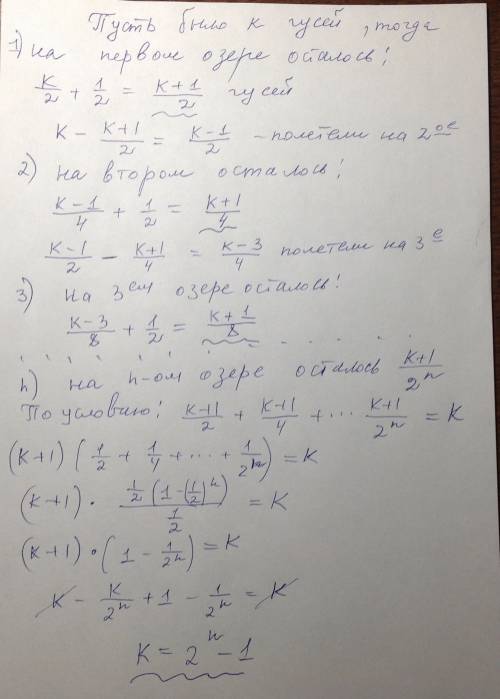 Пусть было к гусей, тогда
1) на первом озере осталось:
K/2 + 1/2 = (K+1)/2 гусей
K - (K+1)/2 = (K-1)/2 - полетели на 2ое
2) на втором осталось:
(K-1)/4 + 1/2 = (K+1)/4
(K-1)/2 - (K+1)/4 = (K-3)/4 полетели на 3е
3) на 3ем озере осталось:
(K-3)/8 + 1/2 = (K+1)/8
. . . . . . . . . .
n) на n-ом озере осталось (K+1)/2^n
По условию: (K+1)/2 + (K+1)/4 + ... (K+1)/2^n = K
(K+1)(1/2 + 1/4 + ... + 1/2^n) = K
(K+1) · (1/2 (1-(1/2)^n))/(1/2) = K
(K+1) · (1 - 1/2^n) = K
K - K/2^n + 1 - 1/2^n = K
K = 2^n - 1